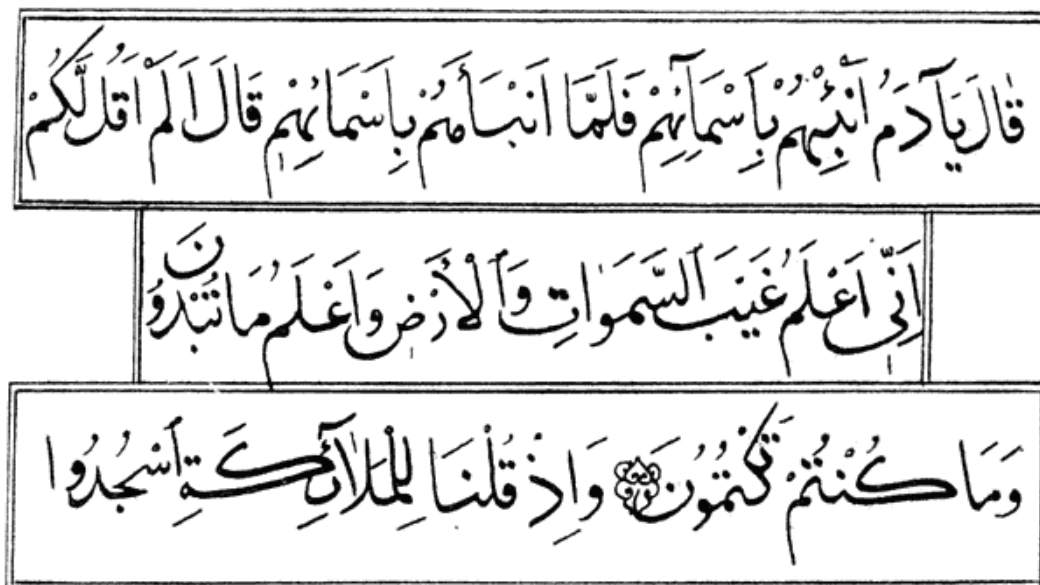 قَالَ يَاآدَمُ أَنْبِئْهُمْ بِأَسْمَآئِهِمْ فَلَمَّا اَنْبَأَهُمْ بِاَسْمَائِهِمْ قَالَ اَلَمْ اَقُلْ لَّكُمْ
اِنِّي اَعْلَمُ غَيْبَ السَّمَوَاتِ وَالْأَرْضِ وَاَعْلَمُ مَا تُبْدُونَ
وَمَا كُنْتُمْ تَكْتُمُونَ وَاِذْ قُلْنَا لِلْمَلَآئِكَةِ اسْجُدُوا